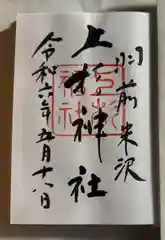 羽前米沢
上杉神社
令和六年五月十八日